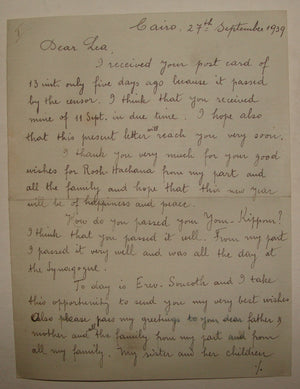 Cairo. 27th September 1939
Dear Lea.
I received your post card of
13 inst. only five days ago because it passed
by the censor. I think that you received
mine of 11 Sept. in due time. I hope also
that this present letter will reach you very soon.
I thank you very much for your good
wishes for Rosh-Hachana from my part and
all the family and hope that this new year
will be of happiness and peace.
How do you passed your Youm-Kippour?
I think that you passed it well. From my part
I passed it very well and was all the day at
the Synagogue.
To day is Erev. Soucoth and I take
this opportunity to send you my very best wishes
Also please pass my greetings to your dear father &
mother and all the family from my part and from
all my family. My sister and her children